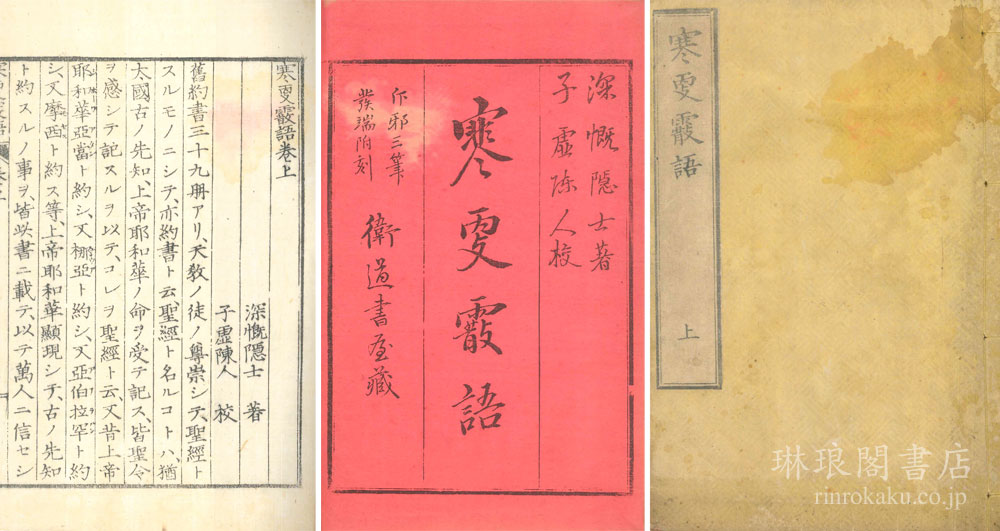 寒更霰語
上
深慨隠士著
子虚陳人校
寒更霰語
斥邪三筆
發端附刻
衛道書屋藏
寒更霰語卷上
深慨隠士 著
子虛陳人 校
舊約書三十九册アリ、天敎ノ徒ノ尊崇シテ、聖經ト
スルモノニシテ、亦約書ト云、聖經ト名ルコトハ、猶
太國古ノ先知、上帝耶和華ノ命ヲ受テ記ス、皆聖令
ヲ感シテ記スルヲ以テ、コレヲ聖經ト云、又昔上帝
耶和華亞當ト約シ、又挪亞ト約シ、又亞伯拉罕ト約
シ、又摩西ト約ス等、上帝耶和華顯現シテ、古ノ先知
ト約スルノ事ヲ、皆此書ニ載テ、以テ萬人ニ信セシ
琳琅閣書店
rinrokaku.co.jp